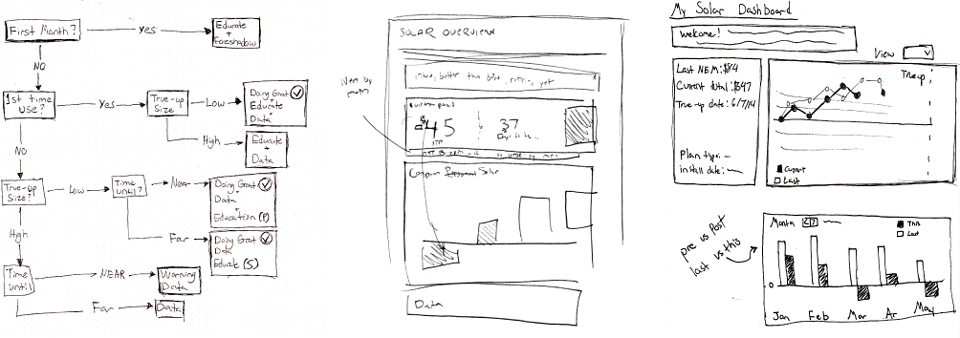 First Month?
Yes
Educate
+
Foreshadow
NO
1st time
use?
Yes
True-up
Size?
Low
Doing Great
Educate
Data
High
Educate
+
Data
NO
True-up
Size?
Low
Time
Until?
Near
Doing Great
Data
+
Education (P)
Far
Doing Great
Data
Educate (S)
High
Time
Until
NEAR
Warning
Data
Far
Data
SOLAR OVERVIEW
better than
yet
45
37
Data
My Solar Dashboard
Welcome!
View
Last NEM: $84
Current total: $547
True-up date: 6/7/14
Plan type:
install date:
True-up
Current
Last
pre vs post
last vs this
Month
This
Last
0
Jan Feb Mar Ar May